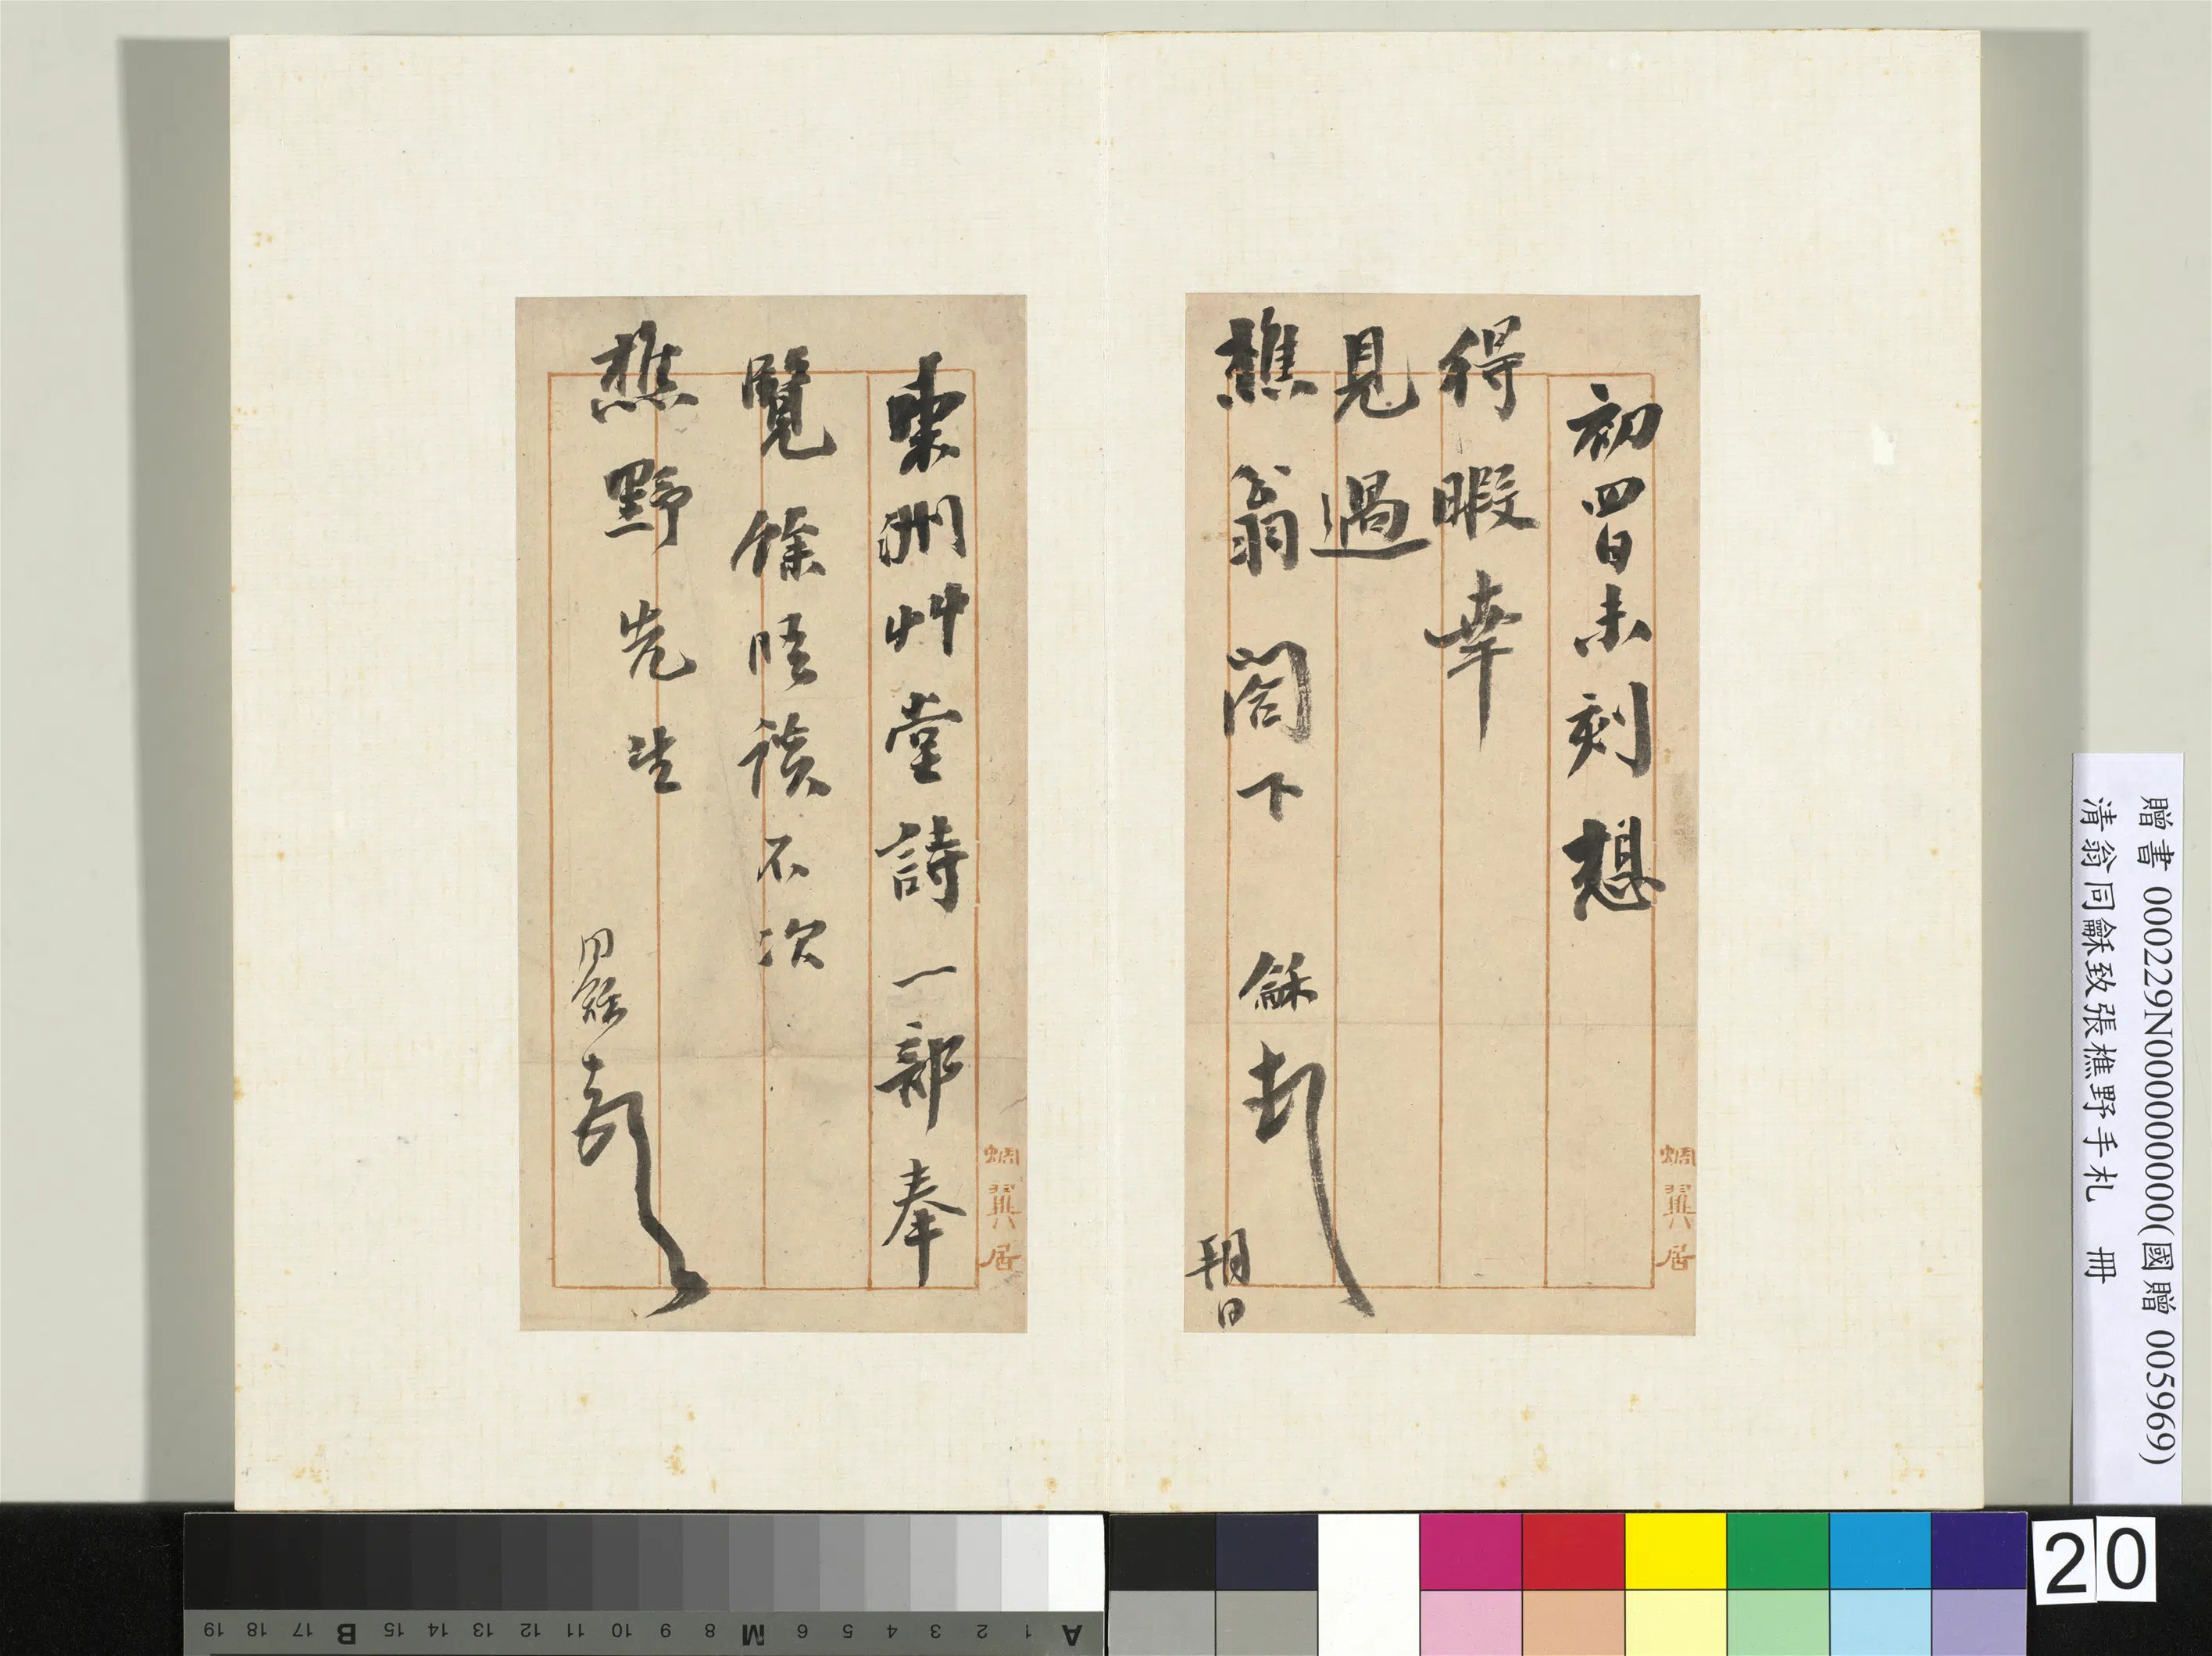 初四日未刻想
得暇幸
見過
樵翁閣下 龢 頓
朔日
蜩翼居
東洲艸堂詩一部奉
覽餘晤談不次
樵野先生
同龢 頓首
蜩翼居
贈書 000229N000000000(國贈 005969)
清翁同龢致張樵野手札 冊
20
A 1 2 3 4 5 6 7 8 M 9 10 11 12 13 14 15 B 17 18 19